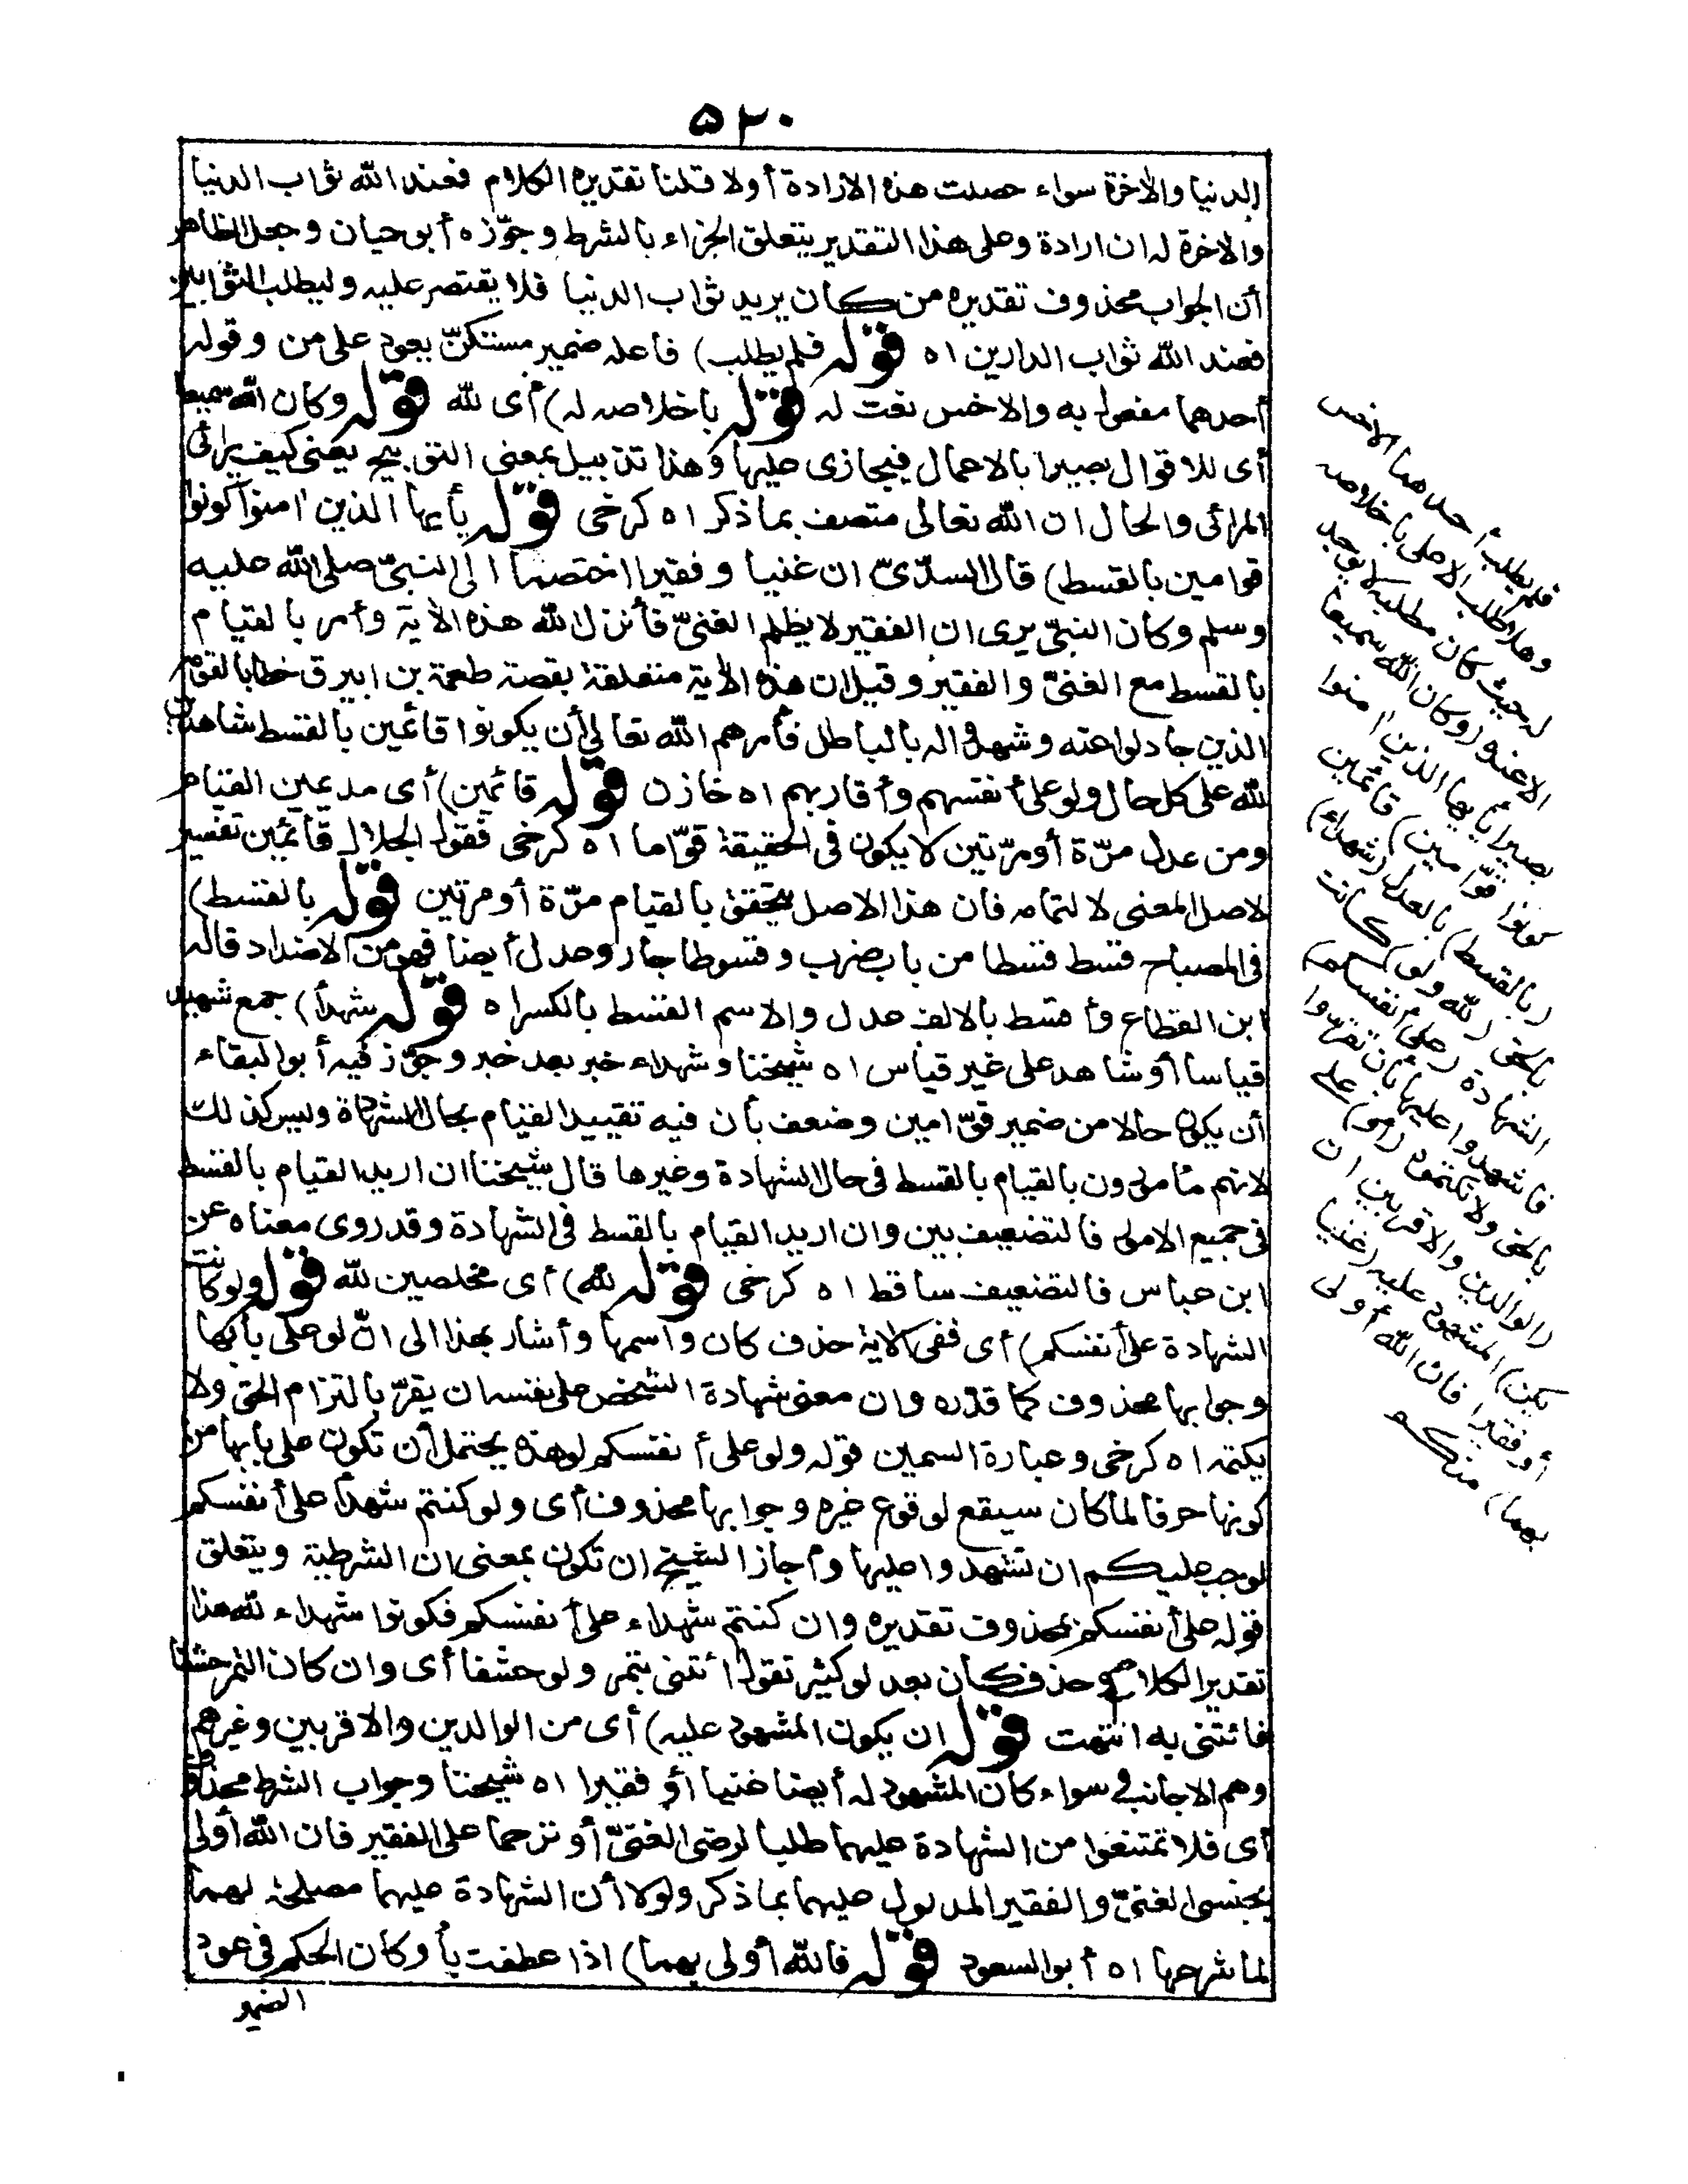 ٥٣٠
الدنيا والاخرة سواء حصلت هذه الارادة أولا قلنا تقديره الكلام فعند الله ثواب الدنيا
والاخرة له ان ارادة وعلى هذا التقدير يتعلق الجزاء بالشرط وجوّزه أبو حيان وجعل الظاهر
أن الجواب محذوف تقديره من كان يريد ثواب الدنيا فلا يقتصر عليه وليطلب الثوابين
فعند الله ثواب الدارين اه قوله فلم يطلب) فاعله ضمير مستتكنّ يعود على من وقوله
أحدهما مفعول به والاخس نعت له قوله باخلاصه له) أى لله قوله وكان الله سميعا
أى للاقوال بصيرا بالاعمال فيجازى عليها وهذا تذييل بمعنى التوبيخ يعنى كيف يرائى
المرائى والحال ان الله تعالى متصف بما ذكر اه كرخى قوله يأيها الذين امنوا كونوا
قوامين بالقسط) قال السدّىّ ان غنيا وفقيرا اختصما الى النبىّ صلى الله عليه
وسلم وكان النبىّ يرى ان الفقير لا يظلم الغنىّ فأنزل الله هذه الاية وأمر بالقيام
بالقسط مع الغنىّ والفقير وقيل ان هذه الاية متعلقة بقصة طعمة بن ابيرق خطابا لقومه
الذين جادلوا عنه وشهدوا له بالباطل فأمرهم الله تعالى أن يكونوا قائمين بالقسط شاهدين
لله على كل حال ولو على أنفسهم وأقاربهم اه خازن قوله قائمين) أى مديمين القيام
ومن عدل مرّة أو مرّتين لا يكون فى الحقيقة قوّاما اه كرخى فقول الجلال قائمين تفسير
لاصل المعنى لا لتمامه فان هذا الاصل يتحقق بالقيام مرّة أو مرتين قوله بالقسط)
فى المصباح قسط قسطا من باب ضرب وقسوطا جار وعدل أيضا فهو من الاضداد قاله
ابن القطاع وأقسط بالالف عدل والاسم القسط بالكسر اه قوله شهدأ) جمع شهيد
قياسا أو شاهد على غير قياس اه شيخنا وشهداء خبر بعد خبر وجوّز فيه أبو البقاء
أن يكون حالا من ضمير قوّامين وضعف بأن فيه تقييد القيام بحال الشهادة وليس كذلك
لانهم مأمورون بالقيام بالقسط فى حال الشهادة وغيرها قال شيخنا ان اريد القيام بالقسط
فى جميع الامور فالتضعيف بين وان اريد القيام بالقسط فى الشهادة وقد روى معناه عن
ابن عباس فالتضعيف ساقط اه كرخى قوله لله) أى مخلصين لله قوله ولو كانت
الشهادة على أنفسكم) أى ففى الاية حذف كان واسمها وأشار بهذا الى انّ لو على بابها
وجوابها محذوف كما قدّره وان معنى شهادة الشخص على نفسه ان يقرّ بالتزام الحق ولا
يكتمه اه كرخى وعبارة السمين قوله ولو على أنفسكم لو هذه يحتمل أن تكون على بابها من
كونها حرفا لما كان سيقع لوقوع غيره وجوابها محذوف أى ولو كنتم شهدأ على أنفسكم
لوجب عليكم ان تشهدوا عليها وأجاز الشيخ ان تكون بمعنى ان الشرطية ويتعلق
قوله على أنفسكم بمحذوف تقديره وان كنتم شهداء على أنفسكم فكونوا شهداء لله هذا
تقدير الكلام وحذف كان بعد لو كثير تقول ائتنى بتمر ولو حشفا أى وان كان التمر حشفا
فائتنى به انتهت قوله ان يكون المشهود عليه) أى من الوالدين والاقربين وغيرهم
وهم الاجانب سواء كان المشهود له أيضا غنيا أو فقيرا اه شيخنا وجواب الشرط محذوف
أى فلا تمتنعوا من الشهادة عليهما طلبا لرضى الغنىّ أو ترحما على الفقير فان الله أولى
بجنسى الغنىّ والفقير المدلول عليهما بما ذكر ولولا أن الشهادة عليهما مصلحة لهما
لما شرعها اه أبو السعود قوله فالله أولى بهما) اذا عطفت بأو كان الحكم فى عود
الضمير
فلم يطلب أحدهما الاخس
وهلا طلب الاعلى باخلاصه
له حيث كان مطلبه لا يوجد
الا عنده (وكان الله سميعا
بصيرا يأيها الذين امنوا
كونوا قوّامين) قائمين
(بالقسط) بالعدل (شهداء)
بالحق (لله ولو) كانت
الشهادة (على أنفسكم)
فاشهدوا عليها بأن تقروا
بالحق ولا تكتموه (أو) على
(الوالدين والاقربين ان
يكن) المشهود عليه (غنيا
أو فقيرا فان الله أولى
بهما) منكم